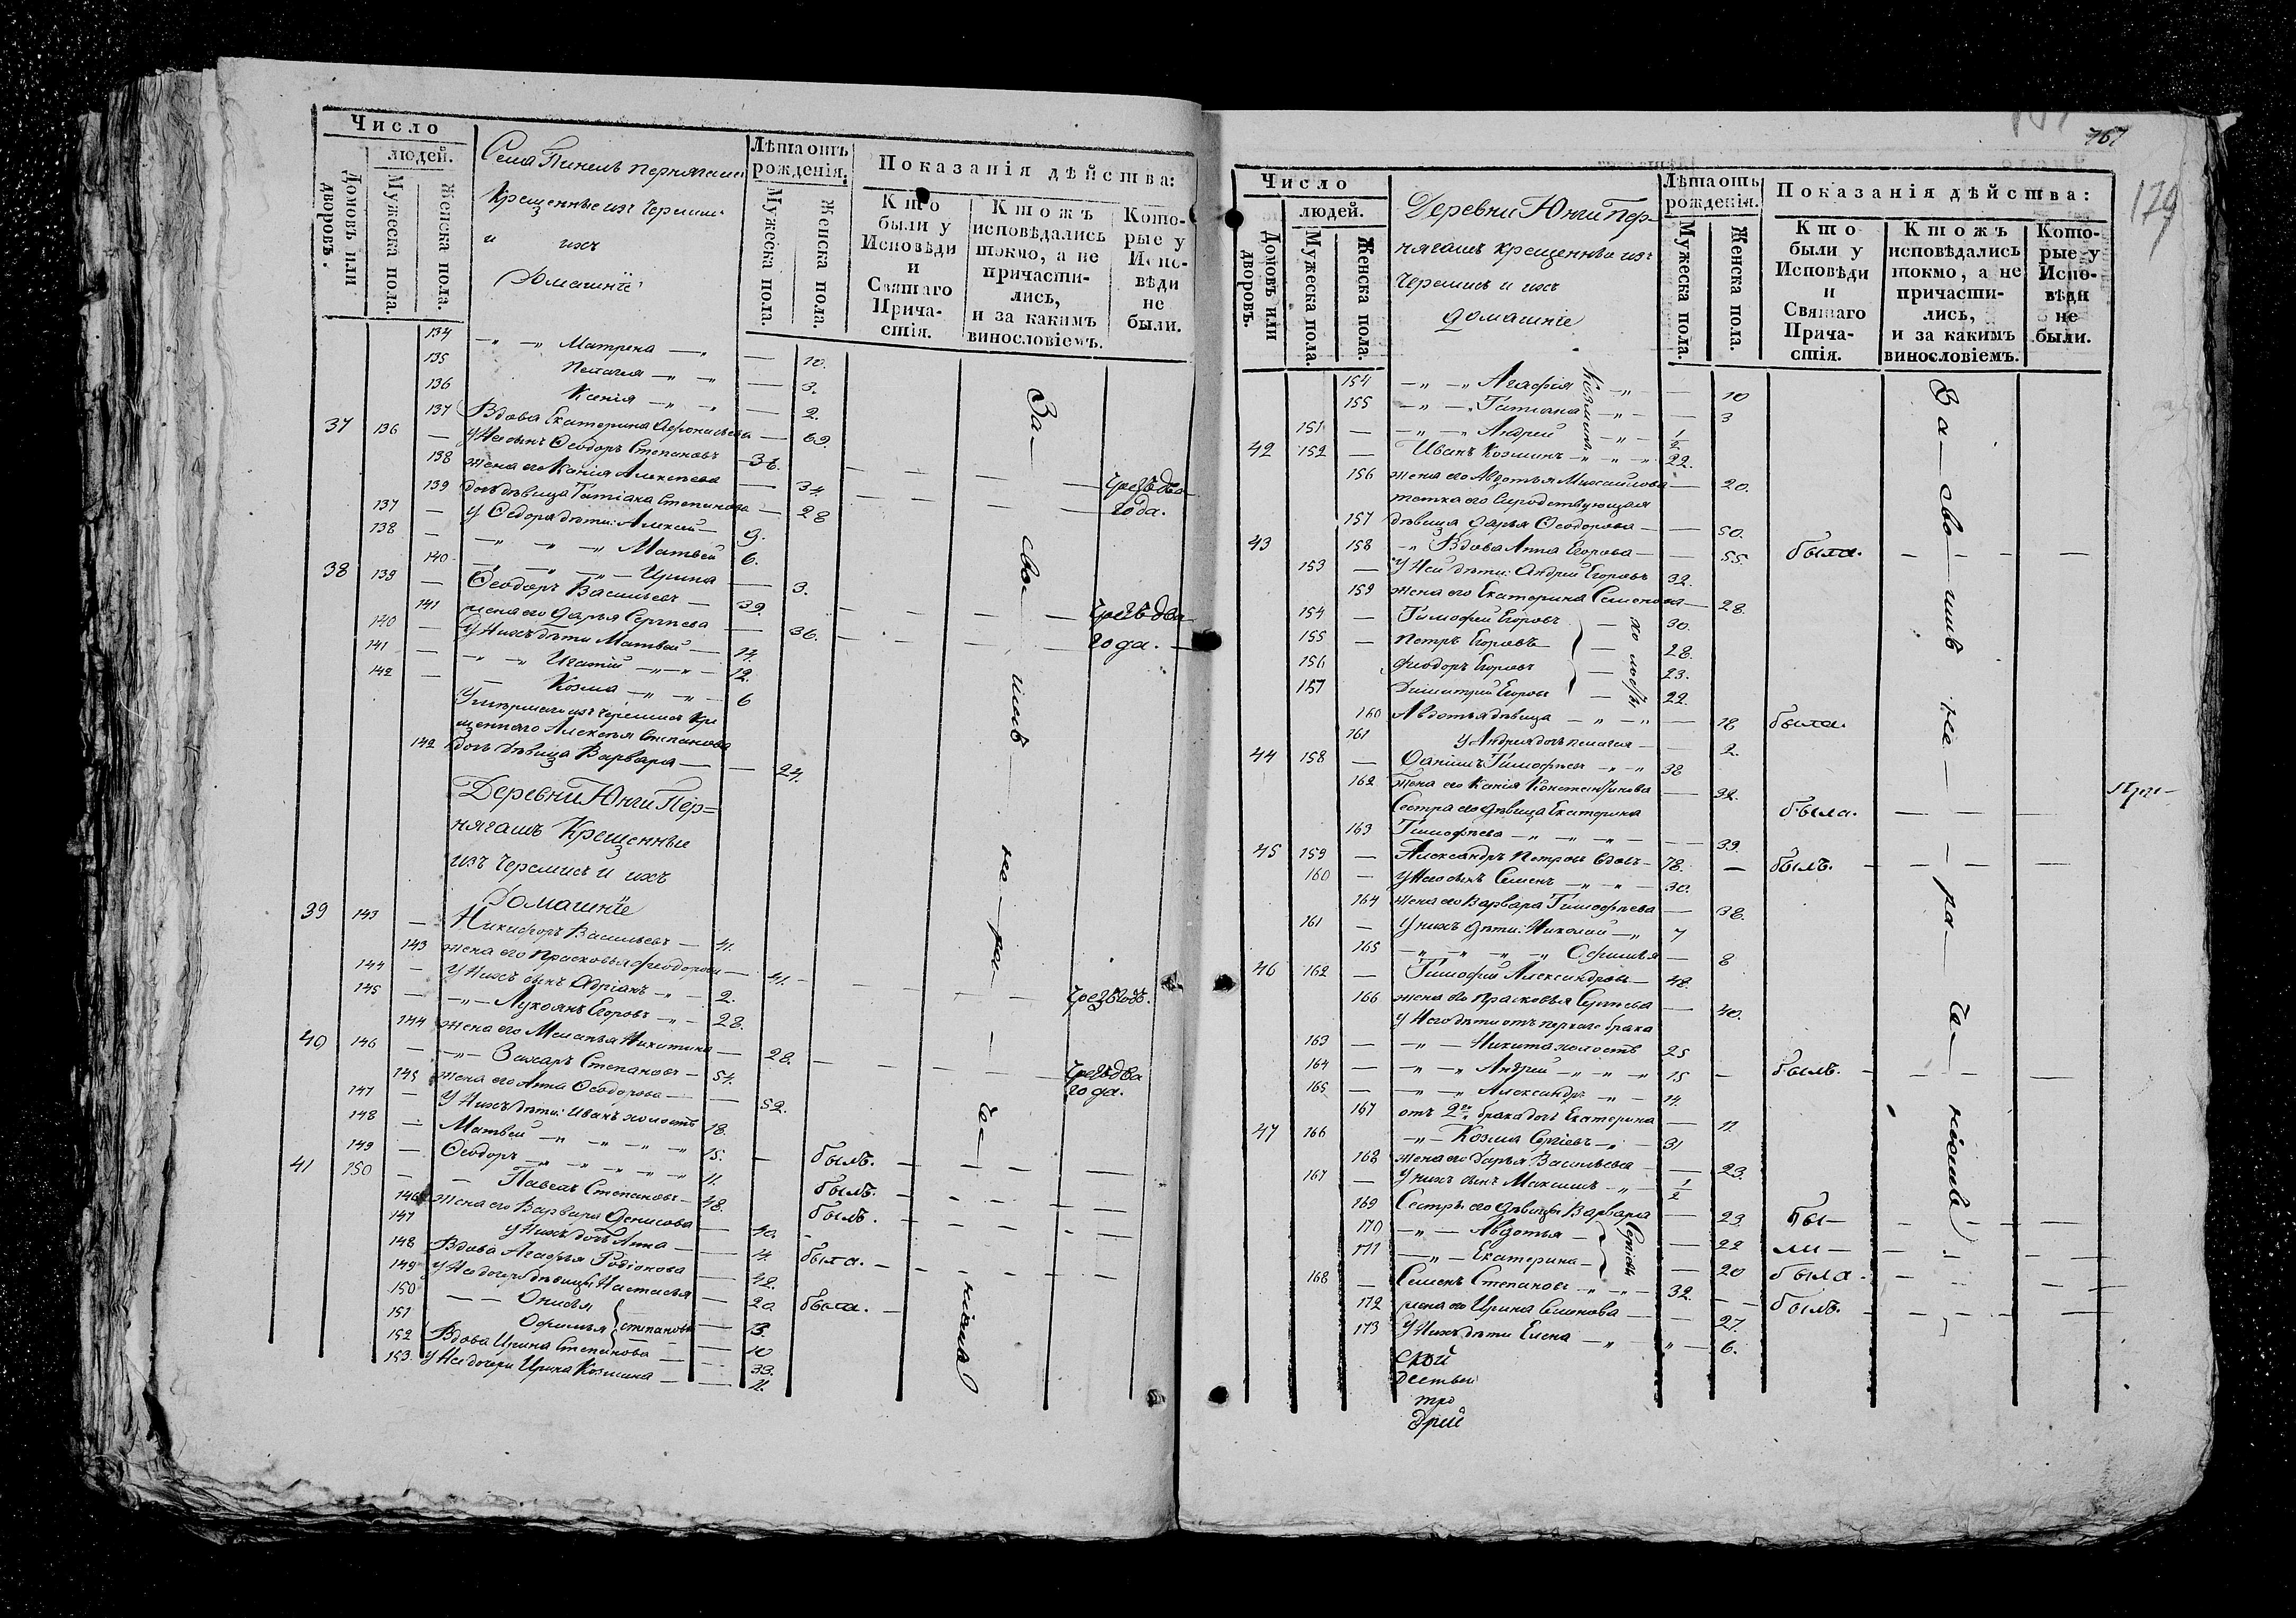 Число
людей.
Домовъ или дворовъ.
Мужеска пола.
Женска пола.
Села
Крещенные изъ Черемис
и ихъ
Домашніе
Лѣта отъ рожденія.
Мужеска пола.
Женска пола.
Показанія дѣйства:
Кто были у Исповѣди и Святаго Причастія.
Ктожъ исповѣдались токмо, а не причастились, и за какимъ винословіемъ.
Которые у Исповѣди не были.
134 Матрена — 10.
135 Пелагея — 3.
136 Ксенія — 2.
37 137 Вдова Екатерина Афонасьева — 69.
136 — У Нея сынъ Ѳеодоръ Степановъ — 36.
138 жена его Ксенія Алексѣева — 34. чрезъ два
139 дочь дѣвица Татіана Степанова — 28 года.
137 — У Ѳедора дѣти: Алексей — 9.
138 — Матвей 6.
140 — Ирина — 3.
38 139 — Ѳеодоръ Васильевъ — 39.
141 жена его Дарья Сергѣева — 36. чрезъ два
140 — У Нихъ дѣти Матвей — 14. года.
141 — Игатій — 12.
142 — Козма — 6
Умершаго изъ черемисъ кре
щеннаго Алексѣя Степанова
142 дочь дѣвица Варвара — 24.
Деревни Юнги Пер=
нягашъ Крещенные
изъ Черемисъ и ихъ
Домашніе
39 143 — Никифоръ Васильевъ — 41.
143 жена его Прасковья Феодорова — 41.
144 — У Нихъ сынъ Адріанъ — 2. чрезъ годъ.
145 — Лукоянъ Егоровъ — 28.
144 жена его Меланья Никитина — 28.
40 146 — Захаръ Степановъ — 54. чрезъ два
145 жена его Анна Ѳеодорова — 52. года.
147 — У Нихъ дѣти: Иванъ холостъ 18.
148 — Матвей — 15. — былъ.
149 — Ѳеодоръ — 11. былъ.
41 150 — Павелъ Степановъ — 48. былъ.
146 жена его Варвара Денисова — 40.
147 У Нихъ дочь Анна — 4. была.
148 Вдова Агафья Родіонова — 48.
149 У Нея дочери дѣвицы Настасья — 20 была.
150 Онисья — 13.
151 Офимья } Степановы — 10
152 Вдова Ирина Степанова — 33.
153. У Нея дочери Ирина Козмина — 11.
За — сво — имъ — не — ра — че — ніемъ
167
179
Число
людей.
Домовъ или дворовъ.
Мужеска пола.
Женска пола.
Деревни Юнги Пер-
нягашъ крещенные изъ
Черемисъ и ихъ
домашніе
Лѣта отъ рожденія.
Мужеска пола.
Женска пола.
Показанія дѣйства:
Кто были у Исповѣди и Святаго Причастія.
Ктожъ исповѣдались токмо, а не причастились, и за какимъ винословіемъ.
Которые у Исповѣди не были.
154 Агафія — 10
155 Татіана — 3
151 — Андрей — 1/2
42 152 — Иванъ Козминъ — 22.
156 жена его Авдотья Михайлова — 20.
тетка его Сиродствующая
157 дѣвица Дарья Ѳеодорова — 50.
43 158 Вдова Анна Егорова — 55. была.
153 — У Ней дѣти: Андрей Егоровъ 32.
159 жена его Екатерина Семенова — 28.
154 — Тимофей Егоровъ — 30.
155 — Петръ Егоровъ — 28.
156 Феодоръ Егоровъ — 23.
157 Димитрей Егоровъ — 22.
160 Авдотья дѣвица — 18 была.
161 У Андрея дочь Пелагея — 2.
44 158 — Тимофѣевъ — 38
162 жена его Ксенія Константинова — 32.
Сестра его дѣвица Екатерина была.
163 Тимофѣева — 39.
45 159 — Александръ Петровъ вдовъ — 78. — былъ.
160 — У Него сынъ Семенъ — 30.
164 жена его Варвара Тимофѣева — 38.
161 — У нихъ дѣти: Николай — 7
165 Офимья — 8
46 162 — Тимофей Александровъ — 48.
166 жена его Прасковья Сергѣева — 40.
У Него дѣти отъ перваго брака
163 — Никита холостъ 25
164 — Андрей — 15 — былъ.
165 — Александръ — 14.
167 отъ 2го брака дочь Екатерина — 11.
47 166 Козма Сергіевъ — 31
168 жена его Дарья Васильева — 23.
167 — У нихъ сынъ Максимъ — 1/2
169 Сестры его дѣвицы Варвара — 23 бы—
170 Авдотья — 22 ли —
171 Екатерина — 20 была.
168 — Семенъ Степановъ — 32. былъ.
172 жена его Ирина Семенова — 27.
173 У Нихъ дѣти Елена — 6.
Козмины
холосты
Сергіевы
За — сво — имъ не — ра — че — ніемъ
скои
тро
дрей